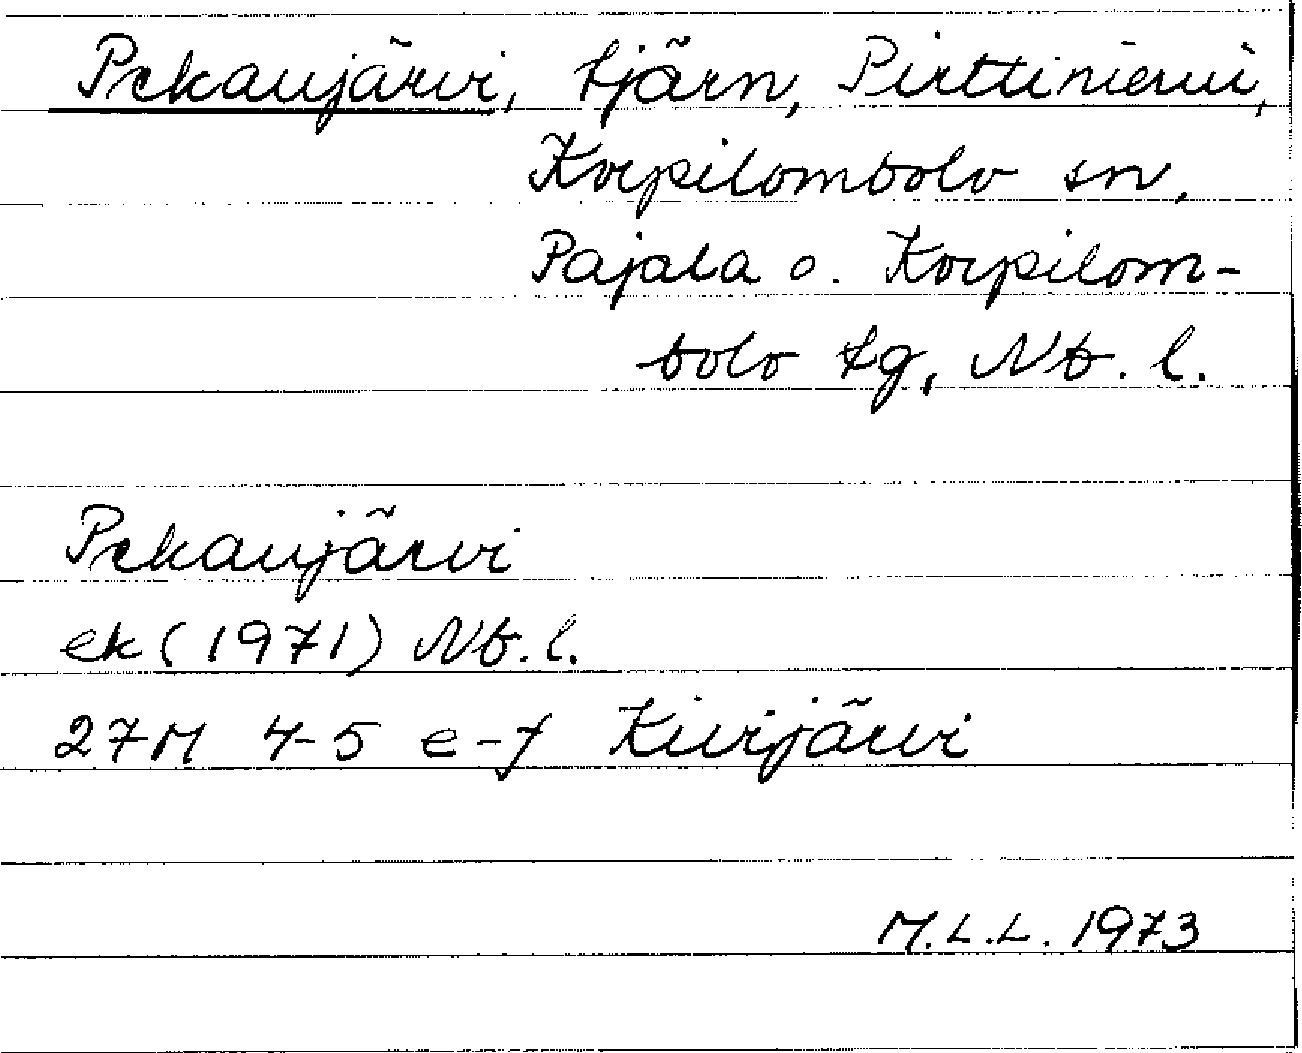 Pekanjärvi, tjärn, Pirttiniemi,
Korpilombolo sn,
Pajala o. Korpilom-
bolo tg, Nb. l.
Pekanjärvi
ek (1971) Nb. l.
27M 4-5 e-f Kivijärvi
M.L.L. 1973